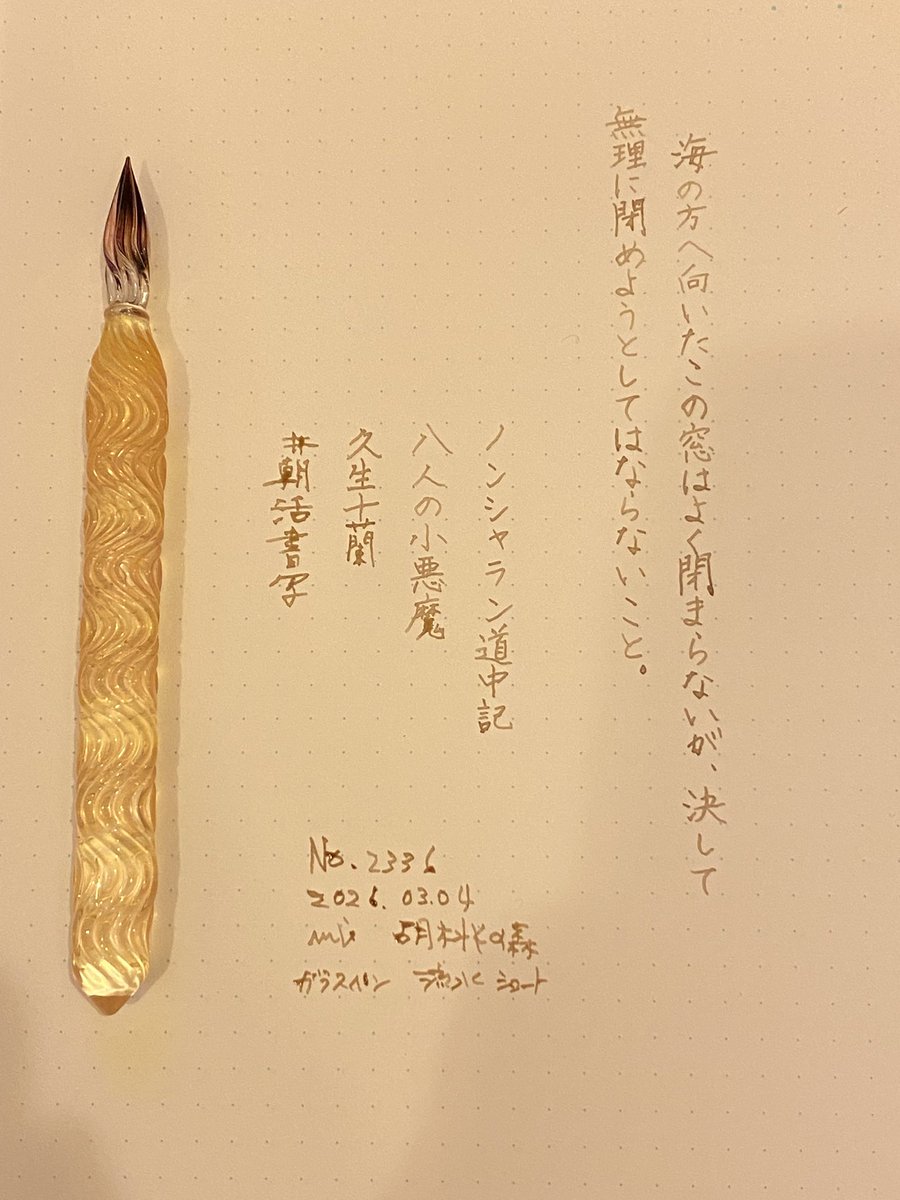 海の方へ向いたこの窓はよく閉まらないが、決して
無理に閉めようとしてはならないこと。
ノンシャラン道中記
八人の小悪魔
久生十蘭
#朝活書写
No.2336
2026.03.04
の森
ガラスペン 流水 ショート